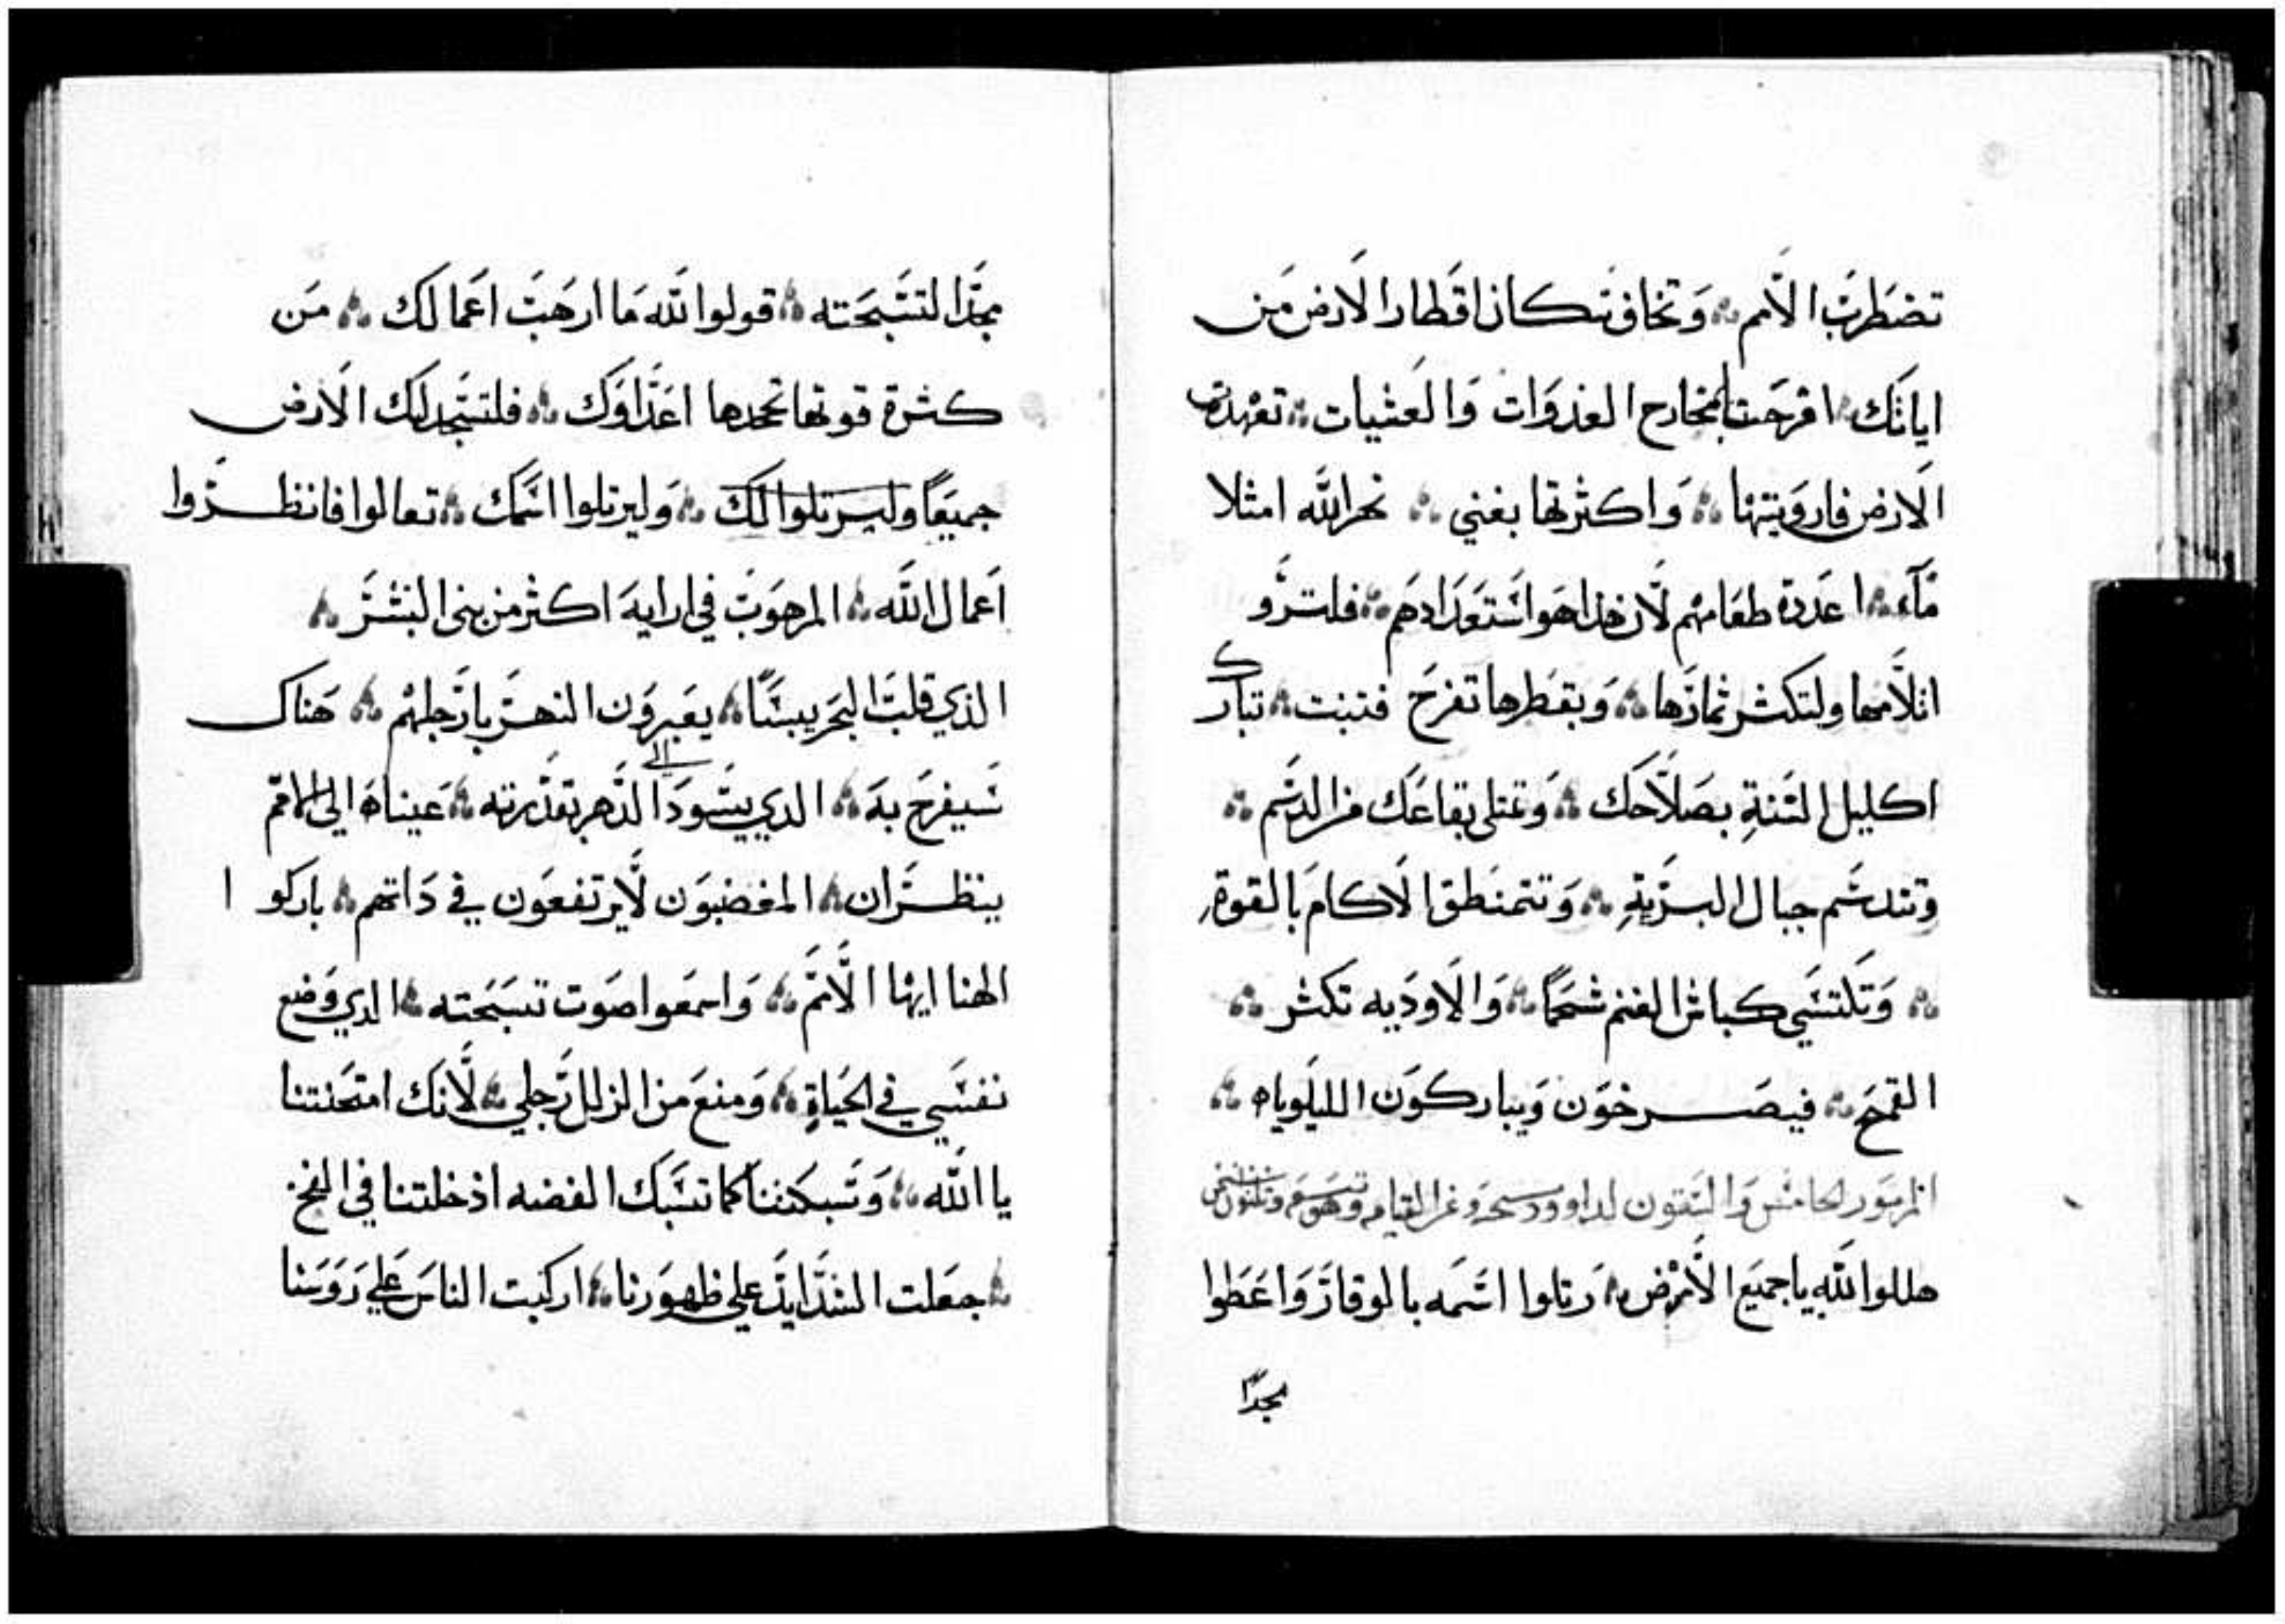 تضطرب الامم وتخاف سكان اقطار الارض من
اياتك افرحت بمخارج الغدوات والعشيات تعهدت
الارض فارويتها واكثرتها بغني نهر الله امثلا
مآء اعددة طعامهم لان هذا هو استعدادهم فلترو
اتلامها ولتكثر ثمارها وبقطرها تفرح فتنبت تبارك
اكليل السنة بصلاحك وتمتلي بقاعك من الدسم
وتندسم جبال البرية وتتمنطق الاكام بالقوة
وتكتسي كباش الغنم شحما والاوديه تكثر
القمح فيصرخون ويباركون الليلوياه
المزمور الخامس والستون لداوود
هللوا لله يا جميع الارض رتلوا اسمه بالوقار واعطوا
مجدا
مجدا لتسبحته قولوا لله ما ارهب اعمالك من
كثرة قوتها تجحدها اعداوك فلتسجد لك الارض
جميعا وليرتلوا لك وليرتلوا اسمك تعالوا فانظروا
اعمال الله المرهوب في ارايه اكثر من بني البشر
الذي قلب البحر يبسا يعبرون النهر بارجلهم هناك
سيفرح به الدي يسود الي الدهر بقدرته عيناه الى الامم
ينظران المغضبون لا يرتفعون في داتهم باركوا
الهنا ايها الامم واسمعوا صوت تسبحته الدي وضع
نفسي في الحياة ومنع من الزلل رجلي لانك امتحنتنا
يا الله وسبكتنا كما تسبك الفضه ادخلتنا في الفخ
جعلت الشدايد علي ظهورنا اركبت الناس علي روسنا